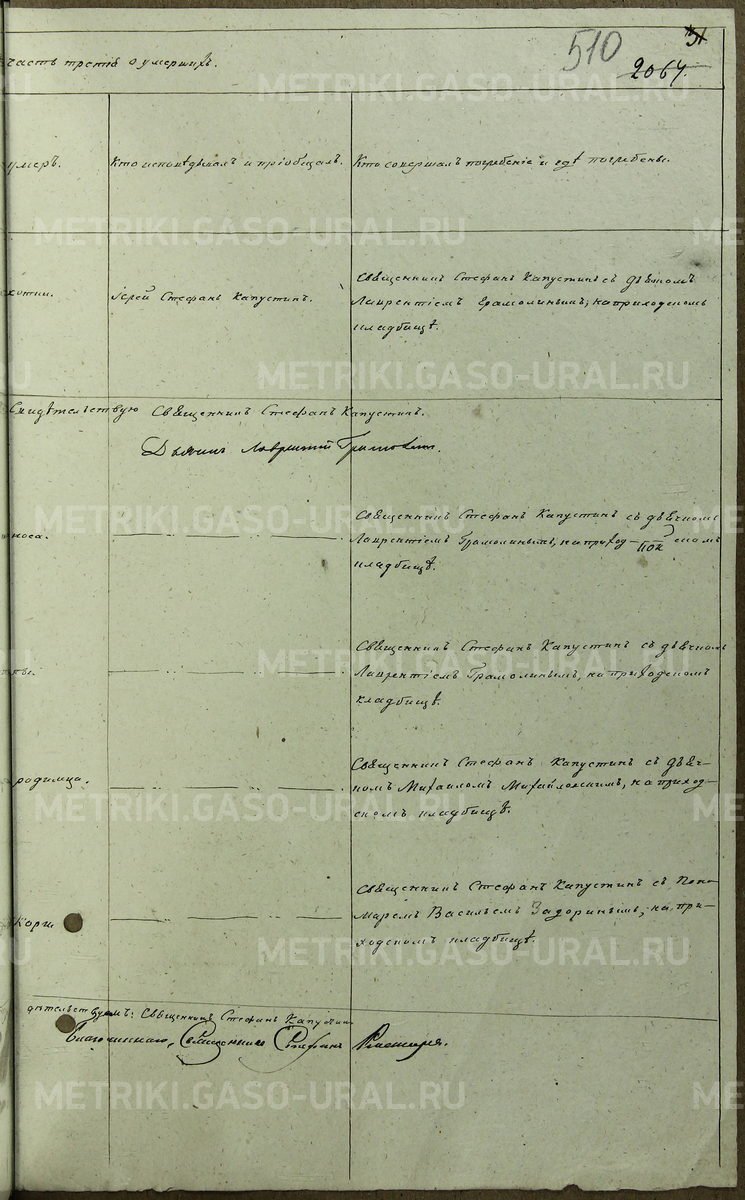 510
2064.
часть третія о умершихъ.
умеръ.
Кто исповѣдывалъ и пріобщалъ.
Кто совершалъ погребеніе и гдѣ погребены.
Іерей Стефанъ Капустинъ.
Священникъ Стефанъ Капустинъ съ дьячкомъ
Лаврентіемъ Ермолинымъ, на приходскомъ
кладбищѣ.
Свидѣтельствую Священникъ Стефанъ Капустинъ.
Дьячикъ Лаврентій
носа.
Священникъ Стефанъ Капустинъ съ дьячкомъ
Лаврентіемъ Грамолинымъ, на приход-
скомъ
кладбищѣ.
Священникъ Стефанъ Капустинъ съ дьячкомъ
Лаврентіемъ Грамолинымъ, на приходскомъ
кладбищѣ.
родимца.
Священникъ Стефанъ Капустинъ съ дьяч-
комъ Михаиломъ Михайловскимъ, на приход-
скомъ кладбищѣ.
Кори
Священникъ Стефанъ Капустинъ съ Поно-
маремъ Васильемъ Задоринымъ, на при-
ходскомъ кладбищѣ.
дѣтельствуемъ: Священникъ Стефанъ Капустинъ
Благочинный, Священникъ Стефанъ
METRIKI.GASO-URAL.RU